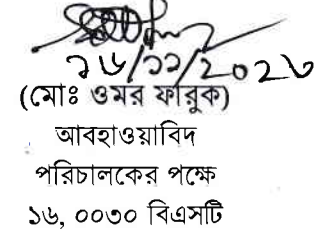 ১৬/১১/২০২৬
(মোঃ ওমর ফারুক)
আবহাওয়াবিদ
পরিচালকের পক্ষে
১৬, ০০৩০ বিএসটি